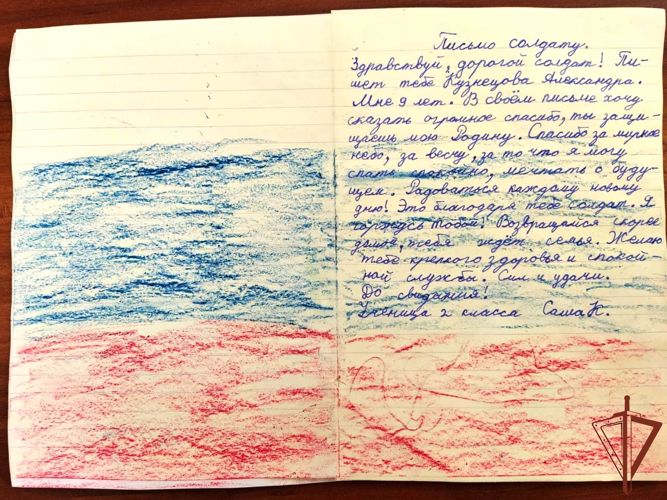 Письмо солдату.
Здравствуй, дорогой солдат! Пи-
шет тебе Кузнецова Александра.
Мне 9 лет. В своём письме хочу
сказать огромное спасибо, ты защи-
щаешь мою Родину. Спасибо за мирное
небо, за весну, за то что я могу
спать спокойно, мечтать о буду-
щем. Радоваться каждому новому
дню! Это благодаря тебе солдат. Я
горжусь тобой! Возвращайся скорее
домой, тебя ждёт семья. Желаю
тебе крепкого здоровья и спокой-
ной службы. Сил и удачи.
До свидания!
Ученица 2 класса Саша К.